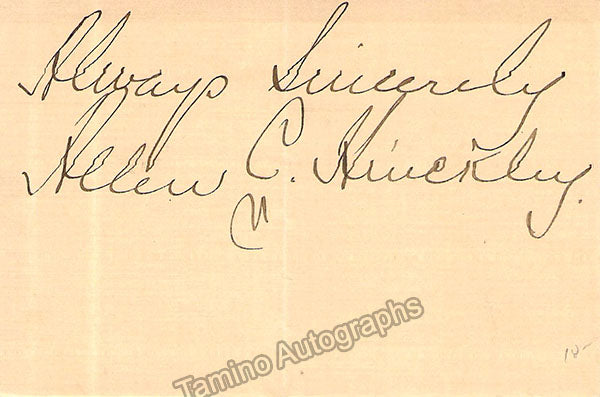 Always Sincerely
Helen C. Hinckley.
Tamino Autographs
10-